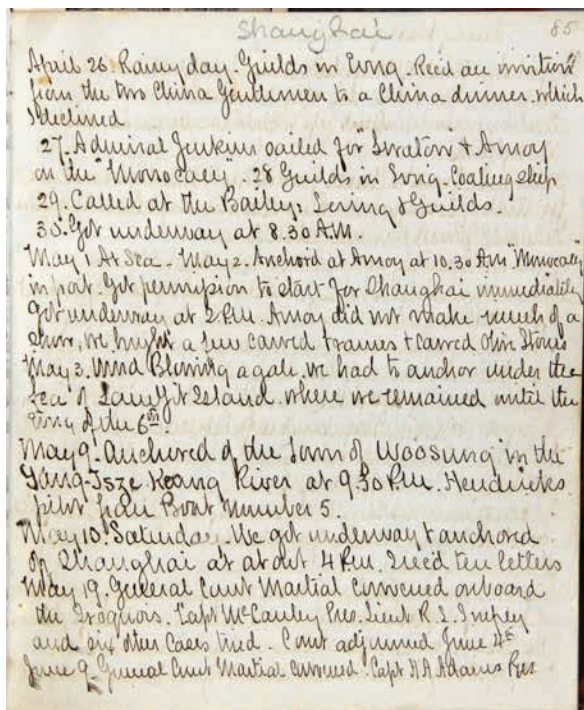 Shanghai 85
April 26. Rainy day. Guilds in Evng. Recd an invitation
from the two China Gentlemen to a China dinner. which
I declined
27. Admiral Jenkins sailed for "Swatow & Amoy
on the "Monocacy". 28 Guilds in Evng. Coaling ship
29. Called at the Baileys, &Guilds.
30. Got underway at 8.30 A.M.
May 1 At Sea. May 2. Anchord at Amoy at 10.30 A.M. "Monocacy"
in port. Got permission to start for Shanghai immediately
Got underway at 2 P.M. Amoy did not make much of a
show, we bought a few carved frames & carved Olive Stones
May 3. Wind Blowing a gale. we had to anchor under the
"Lea" of Island. where we remained until the
Evng of the 6th
May 9. Anchored of the Town of Woosung in the
Yang-Tsze Keang River at 9.30 P.M. Hendricks
pilot from Boat Number 5.
May 10. Saturday. We got underway & anchored
of Shanghai at about 4 P.M. I rec'd ten letters
May 19. General Court Martial convened onboard
the Iroquois. Capt McCauley Pres. Lieut R. L.
and six other Cases tried. Court adjourned June 4th
June 9. General Court Martial convened. Capt H A Adams Pres